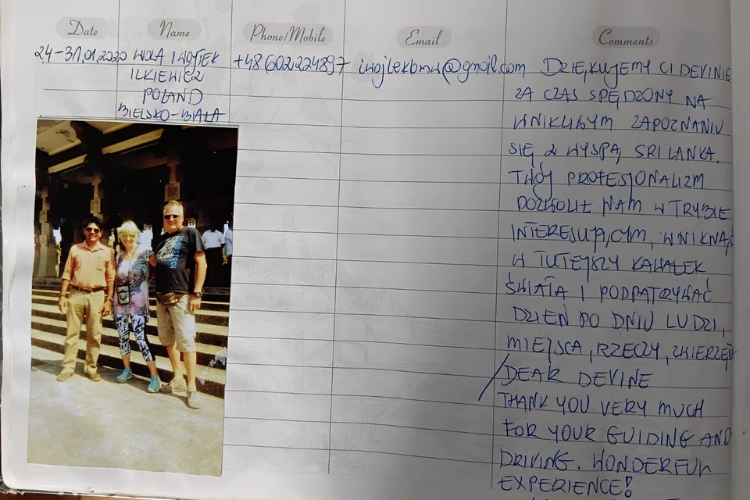 Date Name Phone/Mobile Email Comments
24-31.01.2020 WOLA I WOJTEK +48 602224897 iwojtekbmw@gmail.com DZIĘKUJEMY CI DEVINIE
ILKIEWICZ
POLAND
BIELSKO-BIAŁA
ZA CZAS SPĘDZONY NA
WNIKLIWYM ZAPOZNANIU
SIĘ Z WYSPĄ SRI LANKA.
TWÓJ PROFESJONALIZM
POZWOLIŁ NAM W TRYBIE
INTERESUJĄCYM, WNIKNĄĆ
W TUTEJSZY KAWAŁEK
ŚWIATA I PODPATRYWAĆ
DZIEŃ PO DNIU LUDZI,
MIEJSCA, RZECZY, ZWIERZĘTA
DEAR DEVINE
THANK YOU VERY MUCH
FOR YOUR GUIDING AND
DRIVING. WONDERFUL
EXPERIENCE!